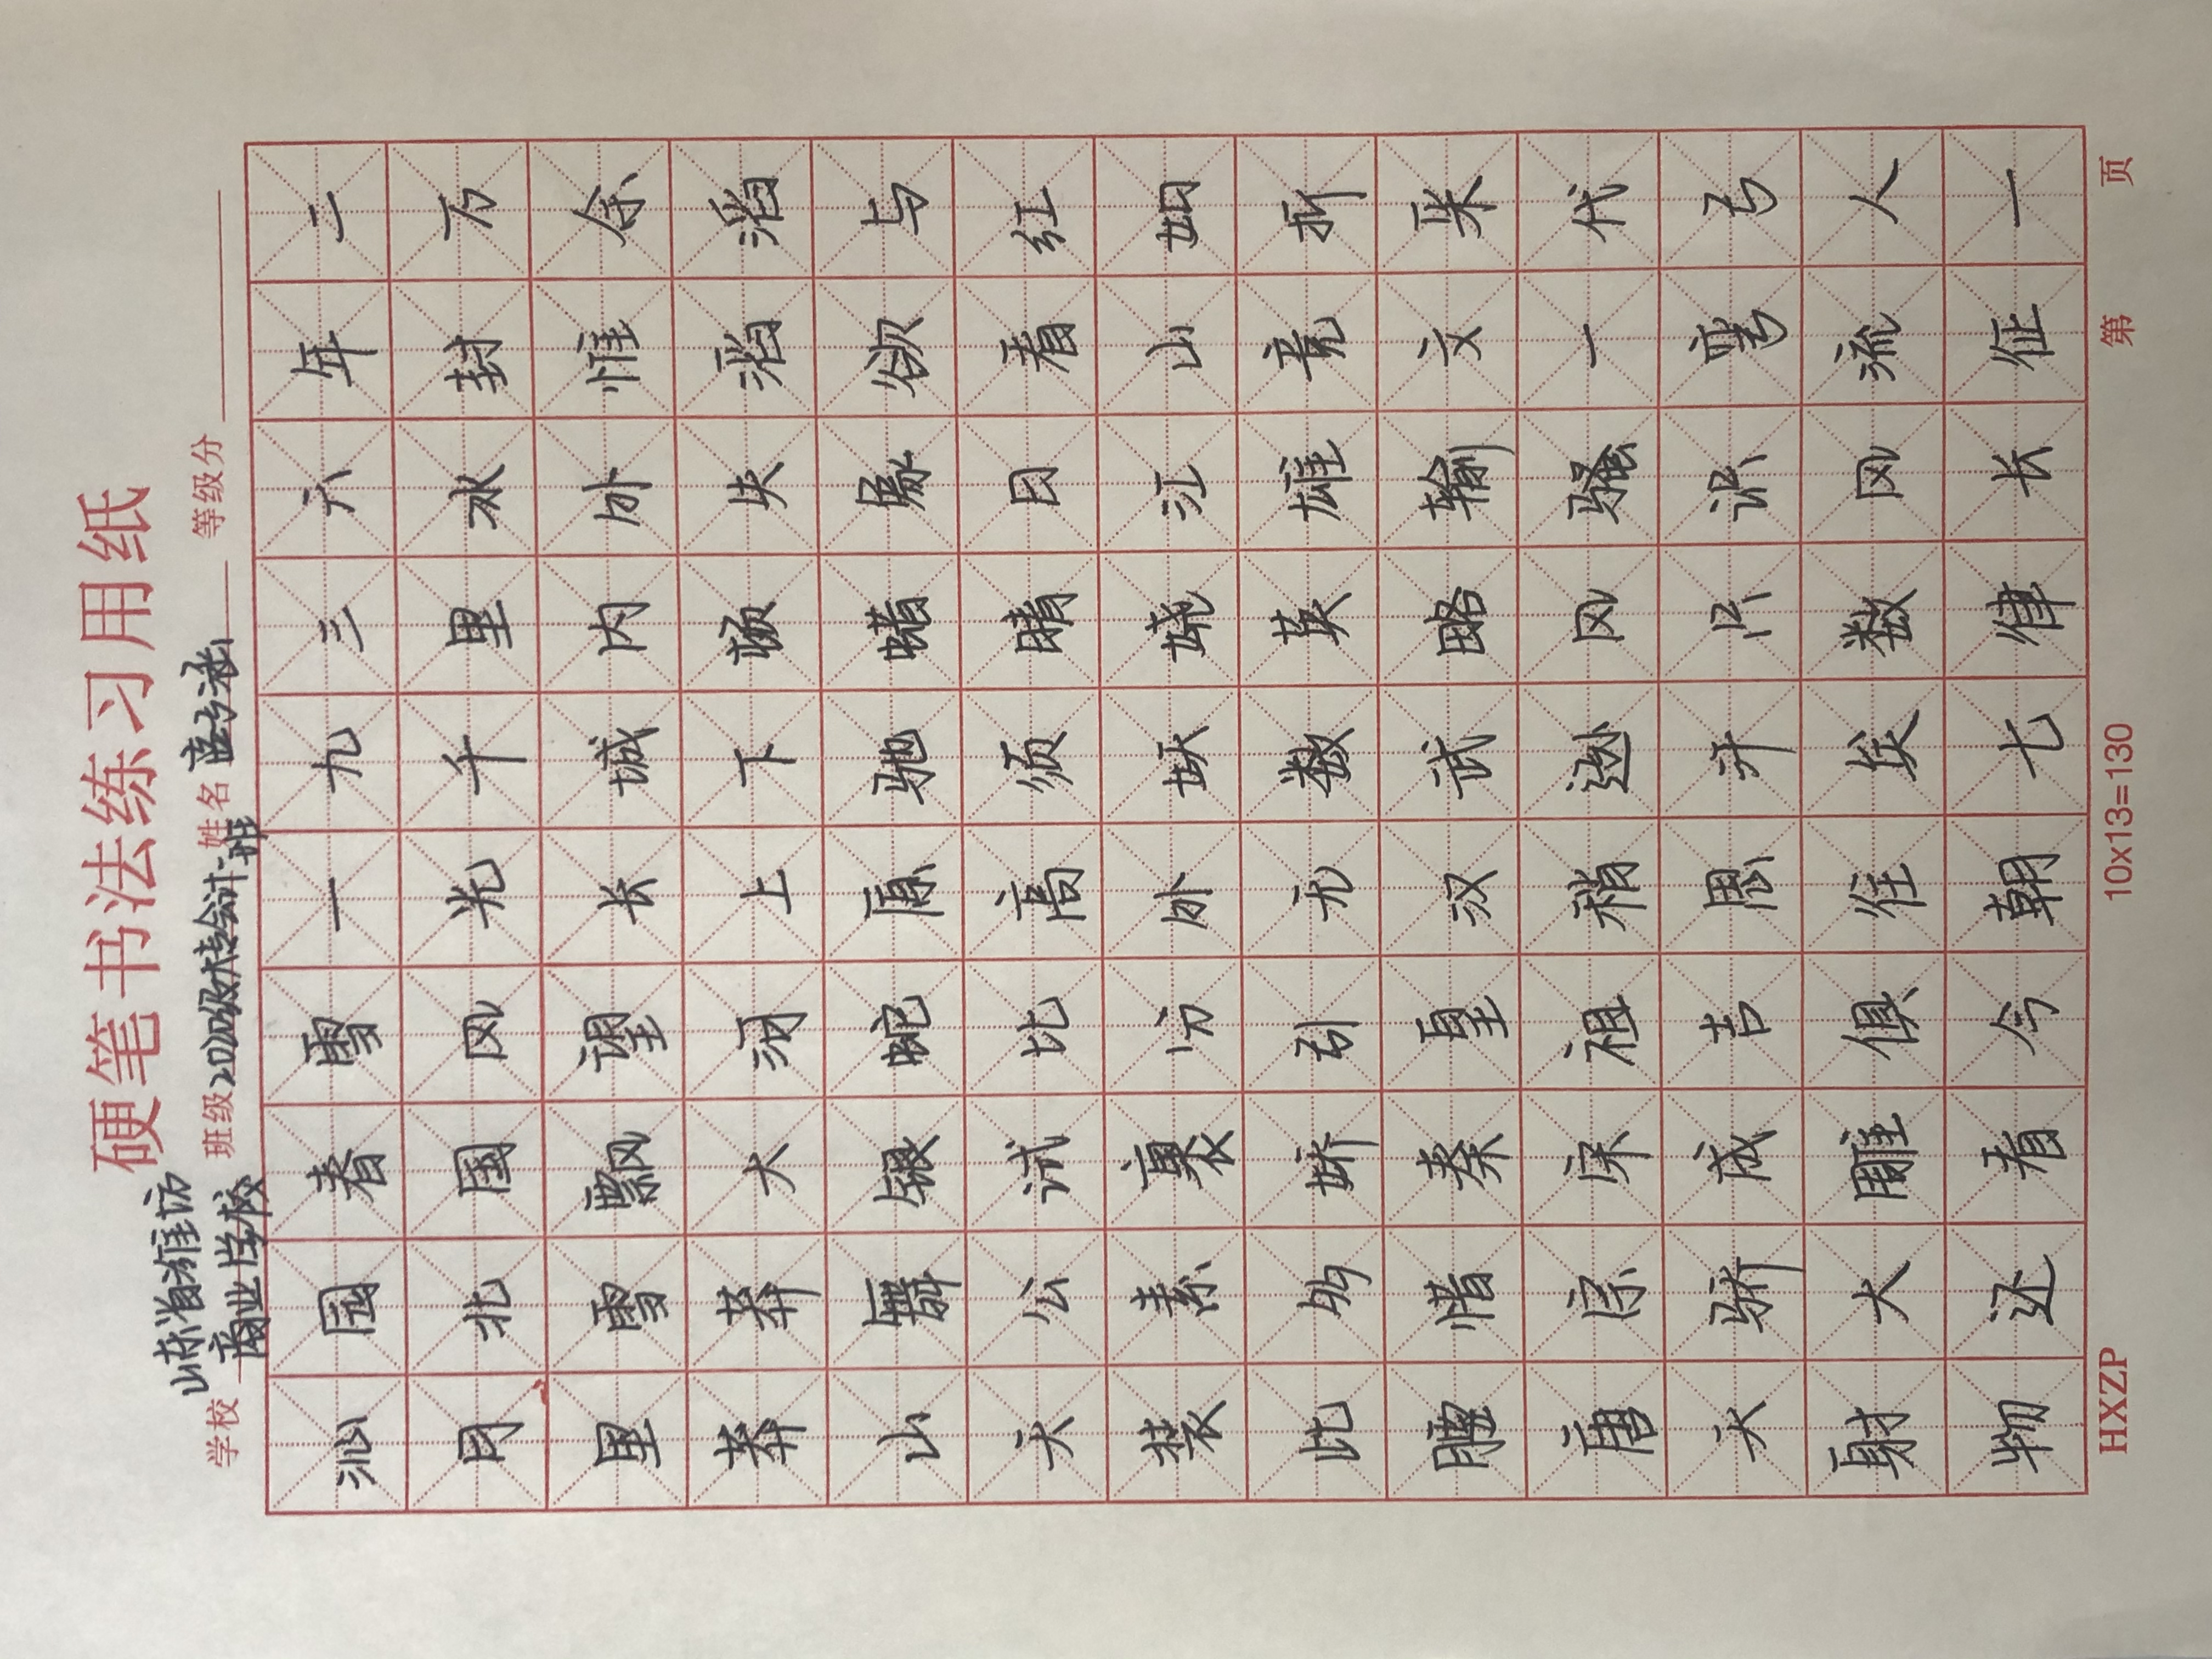 硬笔书法练习用纸
山东省潍坊
学校 商业学校 班级 2020级大专会计一班 姓名 等级分
沁园春雪一九三六年二
月北国风光千里冰封万
里雪飘望长城内外惟余
莽莽大河上下顿失滔滔
山舞银蛇原驰蜡象欲与
天公试比高须晴日看红
装素裹分外妖娆江山如
此多娇引无数英雄竞折
腰惜秦皇汉武略输文采
唐宗宋祖稍逊风骚一代
天骄成吉思汗只识弯弓
射大雕俱往矣数风流人
物还看今朝七律长征一
HXZP 10x13=130 第 页